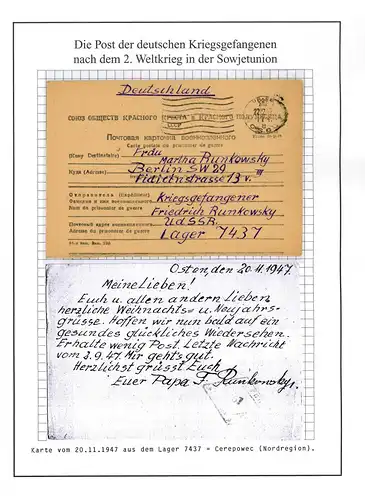 Die Post der deutschen Kriegsgefangenen
nach dem 2. Weltkrieg in der Sowjetunion
Deutschland
СССР
СОЮЗ ОБЩЕСТВ КРАСНОГО КРЕСТА и КРАСНОГО
Почтовая карточка военнопленного
Carte postale du prisonnier de guerre
Frau
Кому (Destinataire) Martha Runkowsky
Куда (Adresse) Berlin SW 29
Fidicinstrasse 13 v. III
Отправитель (Expéditeur)
Фамилия и имя военнопленного Kriegsgefangener
Nom du prisonnier de guerre Friedrich Runkowsky
Почтовый адрес военнопленного UdSSR.
Adresse du prisonnier de guerre Lager 7437
Osten, den 20.11.1947.
Meine Lieben!
Euch u. allen andern Lieben
herzliche Weihnachts= u. Neujahrs-
grüsse. Hoffen wir nun bald auf ein
gesundes glückliches Wiedersehen.
Erhalte wenig Post. Letzte Nachricht
vom 3.9.47. Mir geht's gut.
Herzlichst grüsst Euch
Euer Papa F. Runkowsky.
Karte vom 20.11.1947 aus dem Lager 7437 = Cerepowec (Nordregion).